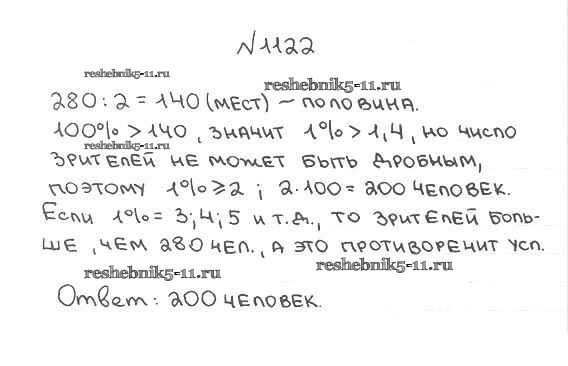 №1122
reshebnik5-11.ru
reshebnik5-11.ru
280:2=140(мест) – половина.
100%>140, значит 1%>1,4, но число
reshebnik5-11.ru
зрителей не может быть дробным,
поэтому 1%≥2; 2·100=200 человек.
Если 1%=3;4;5 и т.д., то зрителей боль-
ше, чем 280 чел., а это противоречит усл.
reshebnik5-11.ru
reshebnik5-11.ru
Ответ: 200 человек.